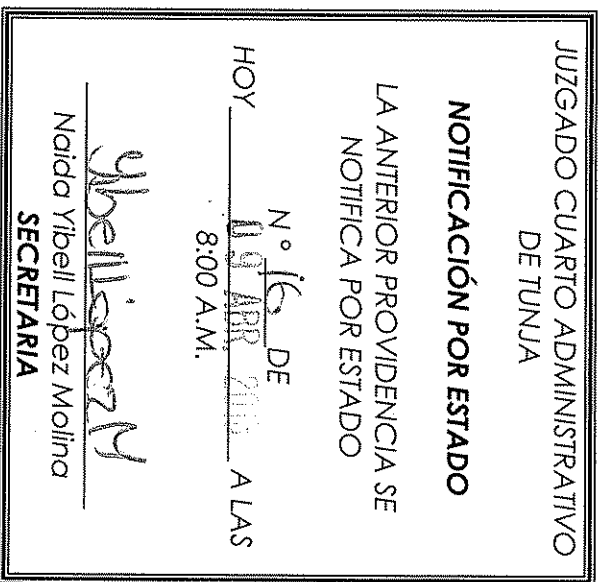 JUZGADO CUARTO ADMINISTRATIVO
DE TUNJA
NOTIFICACIÓN POR ESTADO
LA ANTERIOR PROVIDENCIA SE
NOTIFICA POR ESTADO
N° 16 DE
HOY 09 ABR A LAS
8:00 A.M.
Naida Yibell López Molina
SECRETARIA